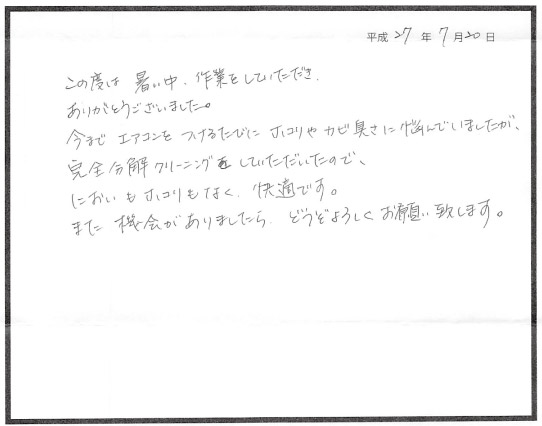 平成27年7月20日
この度は暑い中、作業をしていただき、
ありがとうございました。
今までエアコンをつけるたびにホコリやカビ臭さに悩んでいましたが、
完全分解クリーニングをしていただいたので、
においもホコリもなく、快適です。
また機会がありましたら、どうぞよろしくお願い致します。